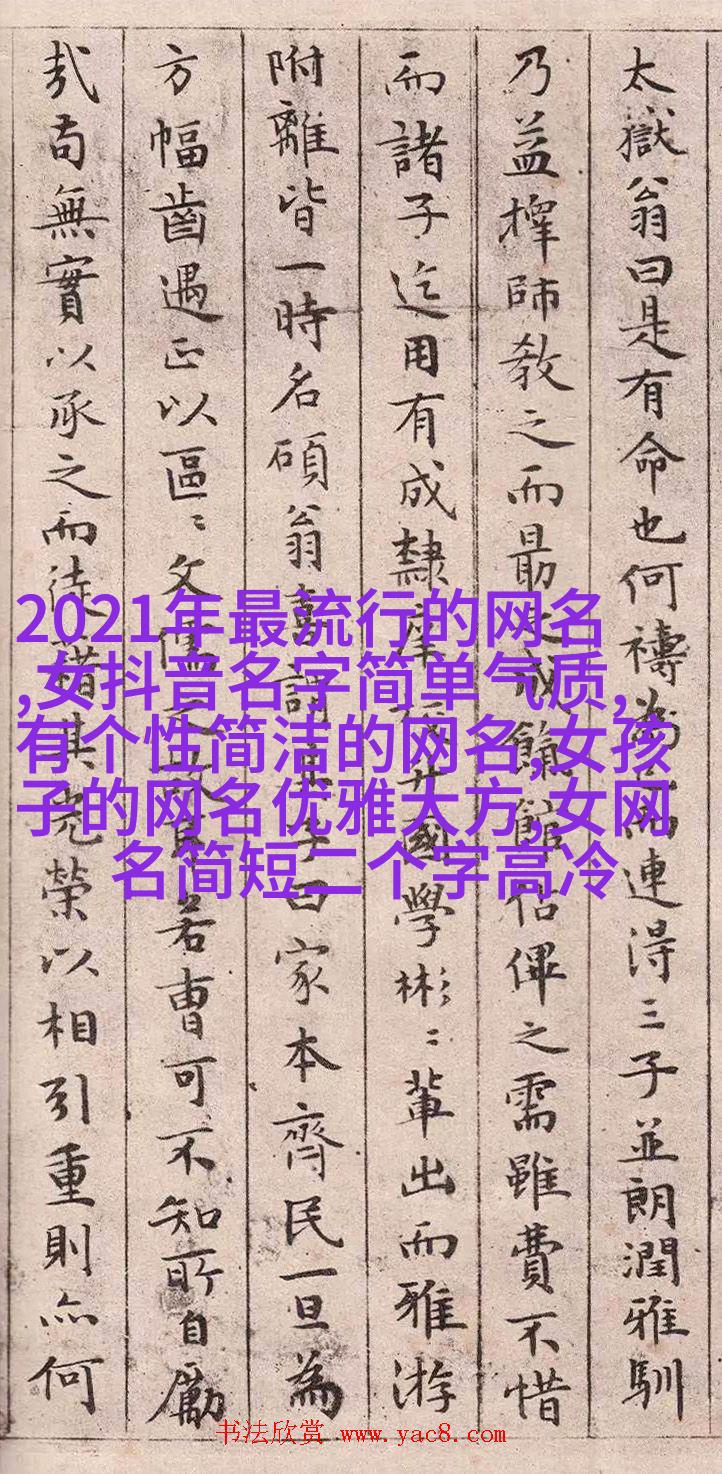 太嶽翁曰是有命也何禱為而連淂三子並朗潤雅馴
乃益擇師教之而最館之需雖費不惜
而諸子迄用有成隸庠國學彬〻輩出而雅游
附離皆一時名碩翁子曰家本齊民一旦為
方幅齒遇正以區〻文若曹可不知所自勵
哉苟無實以承之而徒藉其榮以相引重則亦何
2021年最流行的网名
,女抖音名字简单气质,
有个性简洁的网名,女孩
子的网名优雅大方,女网
名简短二个字高冷
书法欣赏 www.yac8.com